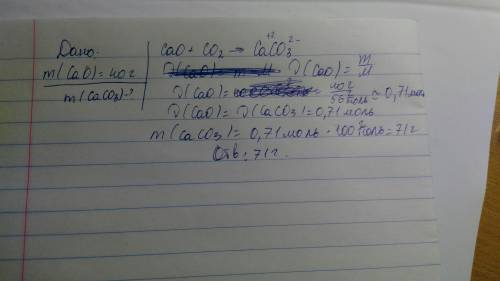 Дано:
m(CaO)=40г
m(CaCO₃)-?
CaO + CO₂ → CaCO₃
+2 2-
ν(CaO)= m/M
ν(CaO)= 40г/56г/моль ≈ 0,71 моль
ν(CaO)= ν(CaCO₃)= 0,71 моль
m(CaCO₃)= 0,71 моль · 100 г/моль = 71г
Отв: 71г.